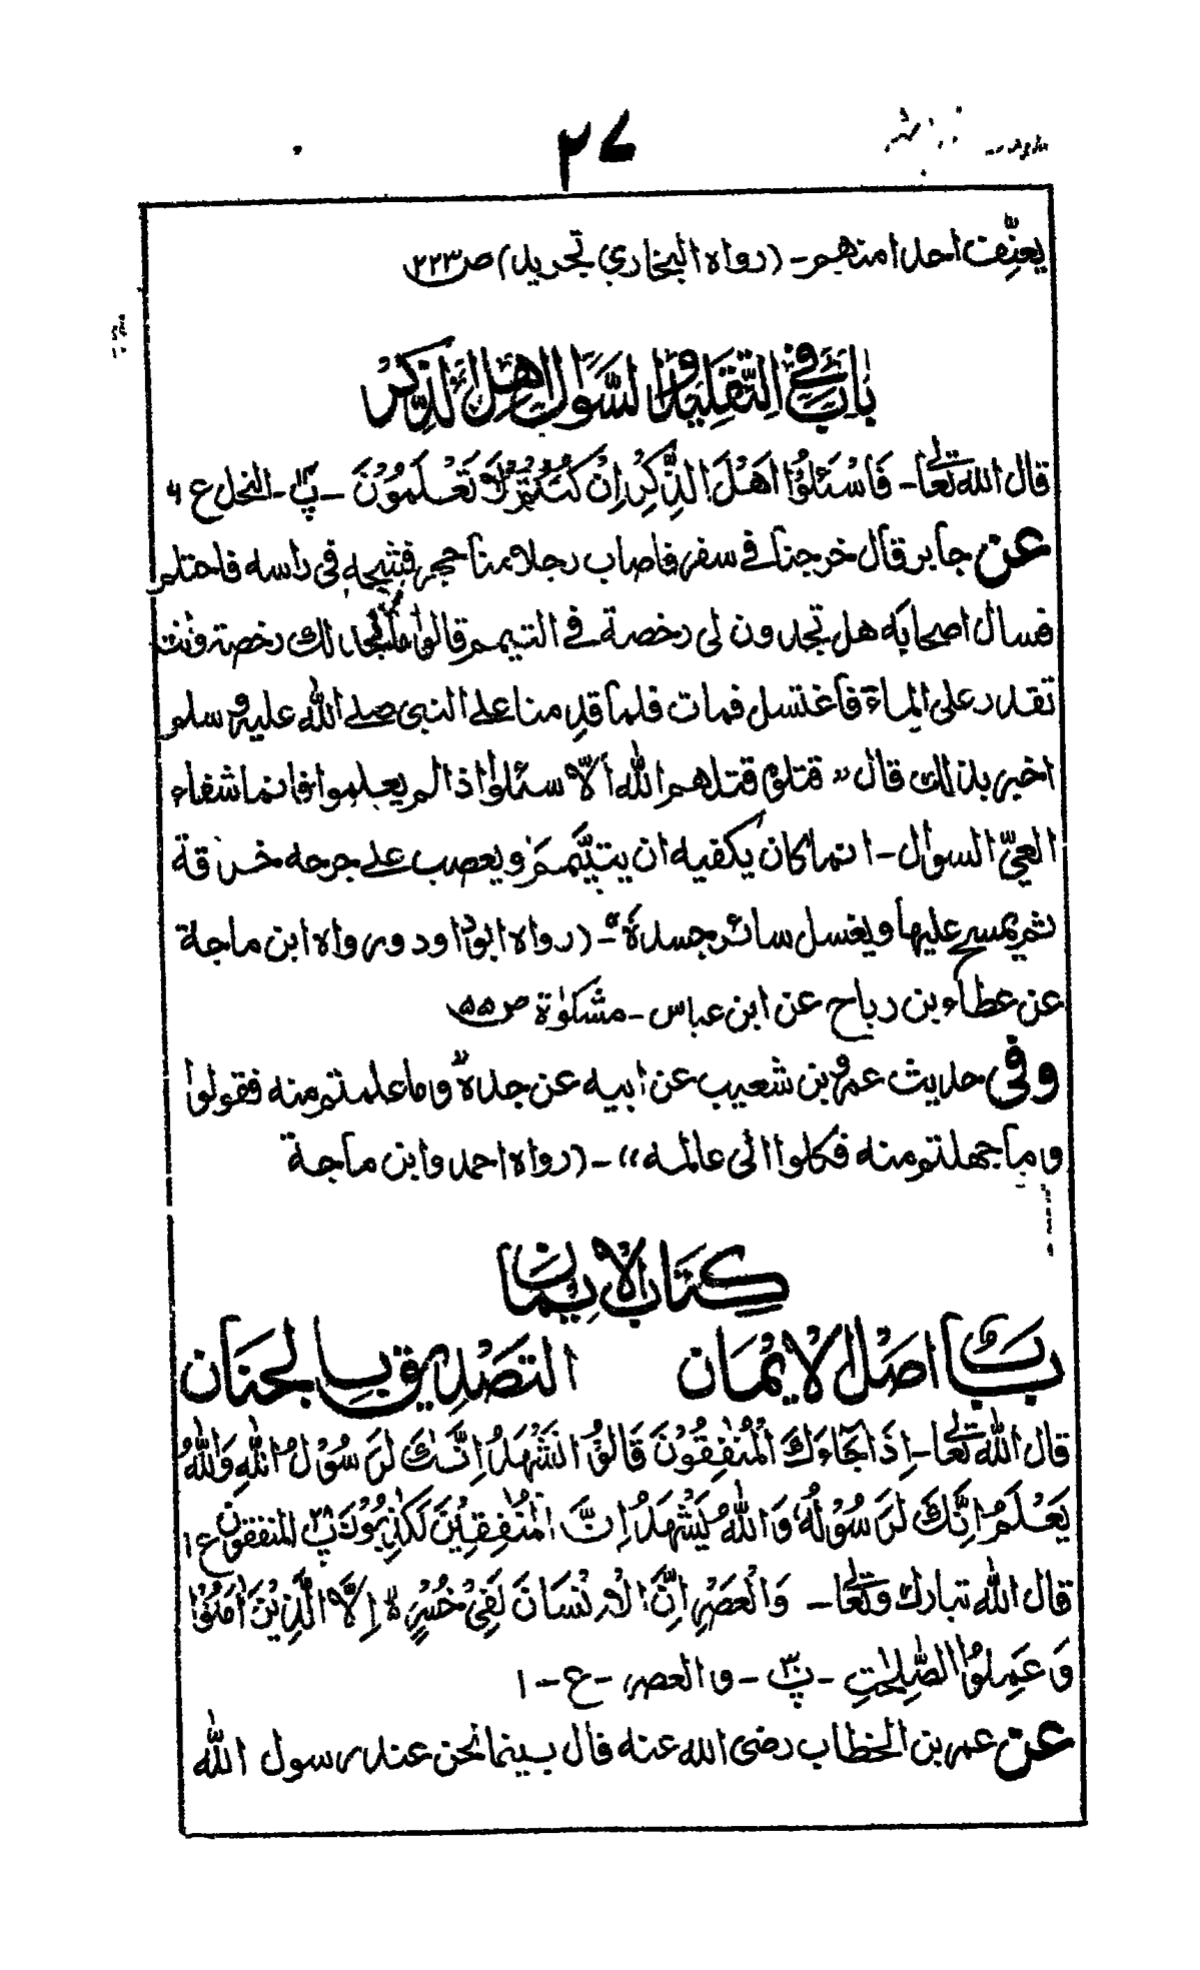 ٢٧
يعنِّف احدا منهم - (رواه البخاري تجريد) ص ٢٢٣
بَابٌ فِي التَّقلِيدِ وَالسَّوَالِ اَهْلَ الذِّكرِ
قال الله تعالىٰ - فَاسْئَلُوْٓا اَهْلَ الذِّكْرِ اِنْ كُنْتُمْ لَا تَعْلَمُوْنَ - پ١٤ - النحل ع ٦
عن جابر قال خرجنا في سفر فاصاب رجلا منا حجر فشجه في راسه فاحتلم
فسال اصحابه هل تجدون لى رخصة في التيمم قالوا ما نجد لك رخصة وانت
تقدر على الماء فاغتسل فمات فلما قدمنا على النبى صلے الله عليه وسلم
اخبر بذالك قال "قتلوه قتلهم الله الّا سئلوا اذا لم يعلموا فانما شفاء
العيّ السوال - انما كان يكفيه ان يتيّمم ويعصب على جرحه خرقة
ثم يمسح عليها ويغسل سائر جسده" - (رواه ابوداود ورواه ابن ماجة
عن عطاء بن رباح عن ابن عباس - مشكوٰة ص ٥٥
وفى حديث عمرو بن شعيب عن ابيه عن جده "وما علمتم منه فقولوا
وما جهلتم منه فكلوا الى عالمه" - (رواه احمد وابن ماجة
كِتَابُ الْاِيْمَان
بَابُ اَصْلُ الْاِيْمَان التصْدِيق بِالجَنَان
قال الله تعالىٰ - اِذَا جَآءَكَ الْمُنٰفِقُوْنَ قَالُوْا نَشْهَدُ اِنَّكَ لَرَسُوْلُ اللّٰهِ وَاللّٰهُ
يَعْلَمُ اِنَّكَ لَرَسُوْلُهٗ وَاللّٰهُ يَشْهَدُ اِنَّ الْمُنٰفِقِيْنَ لَكٰذِبُوْنَ پ٢٨ المنفقون ع ١
قال الله تبارك وتعالىٰ - وَالْعَصْرِ اِنَّ الْاِنْسَانَ لَفِيْ خُسْرٍ ه اِلَّا الَّذِيْنَ اٰمَنُوْا
وَعَمِلُوا الصّٰلِحٰتِ - پ٣٠ - والعصر - ع - ١
عن عمر بن الخطاب رضى الله عنه قال بينما نحن عند رسول الله